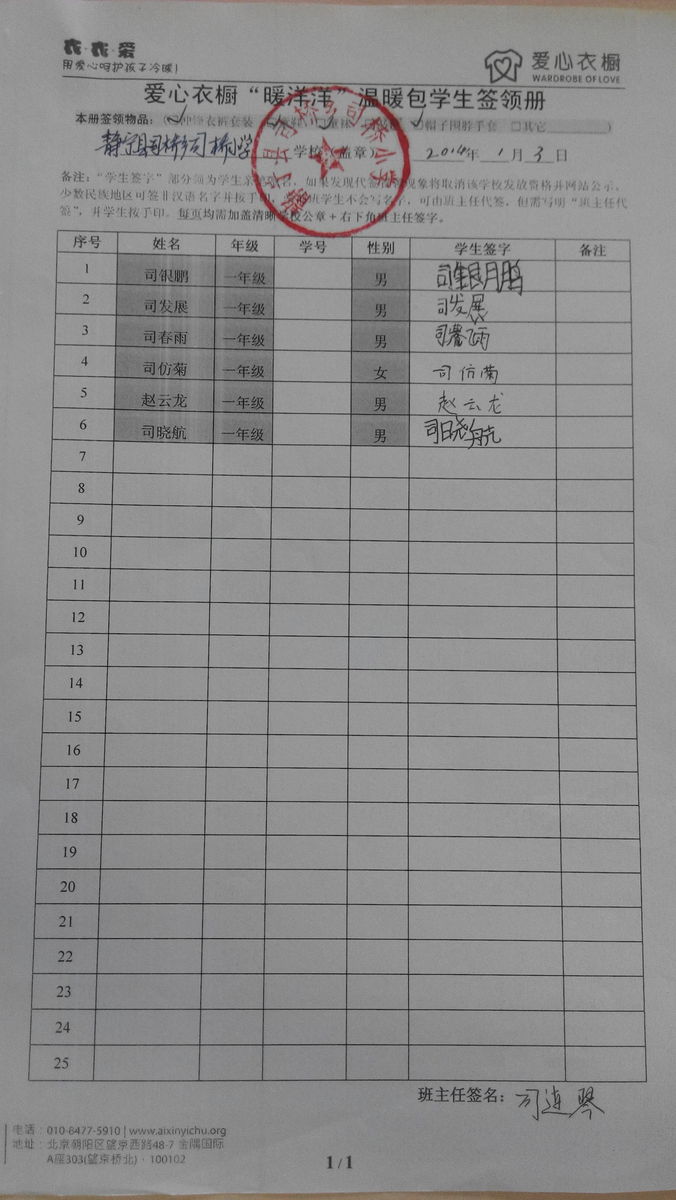 衣·衣·爱
用爱心呵护孩子冷暖！
爱心衣橱
WARDROBE OF LOVE
爱心衣橱“暖洋洋”温暖包学生签领册
本册签领物品： 帽子围脖手套 □其它
静宁县司桥乡司桥小学 学校（盖章） 2014年 1月 3日
备注：“学生签字”部分须为学生亲 如果发现代签 现象将取消该学校发放资格并网站公示。
少数民族地区可签非汉语名字并按手印， 班学生不会写名字，可由班主任代签，但需写明“班主任代
签”，并学生按手印。每页均需加盖清晰学校公章＋右下角班主任签字。
序号 姓名 年级 学号 性别 学生签字 备注
1 司银鹏 一年级 男 司银鹏
2 司发展 一年级 男 司发展
3 司春雨 一年级 男 司春雨
4 司仿菊 一年级 女 司仿菊
5 赵云龙 一年级 男 赵云龙
6 司晓航 一年级 男 司晓航
7
8
9
10
11
12
13
14
15
16
17
18
19
20
21
22
23
24
25
班主任签名：司连琴
电话：010-8477-5910 | www.aixinyichu.org
地址：北京朝阳区望京西路48-7 金隅国际
A座303(望京桥北)·100102
1 / 1